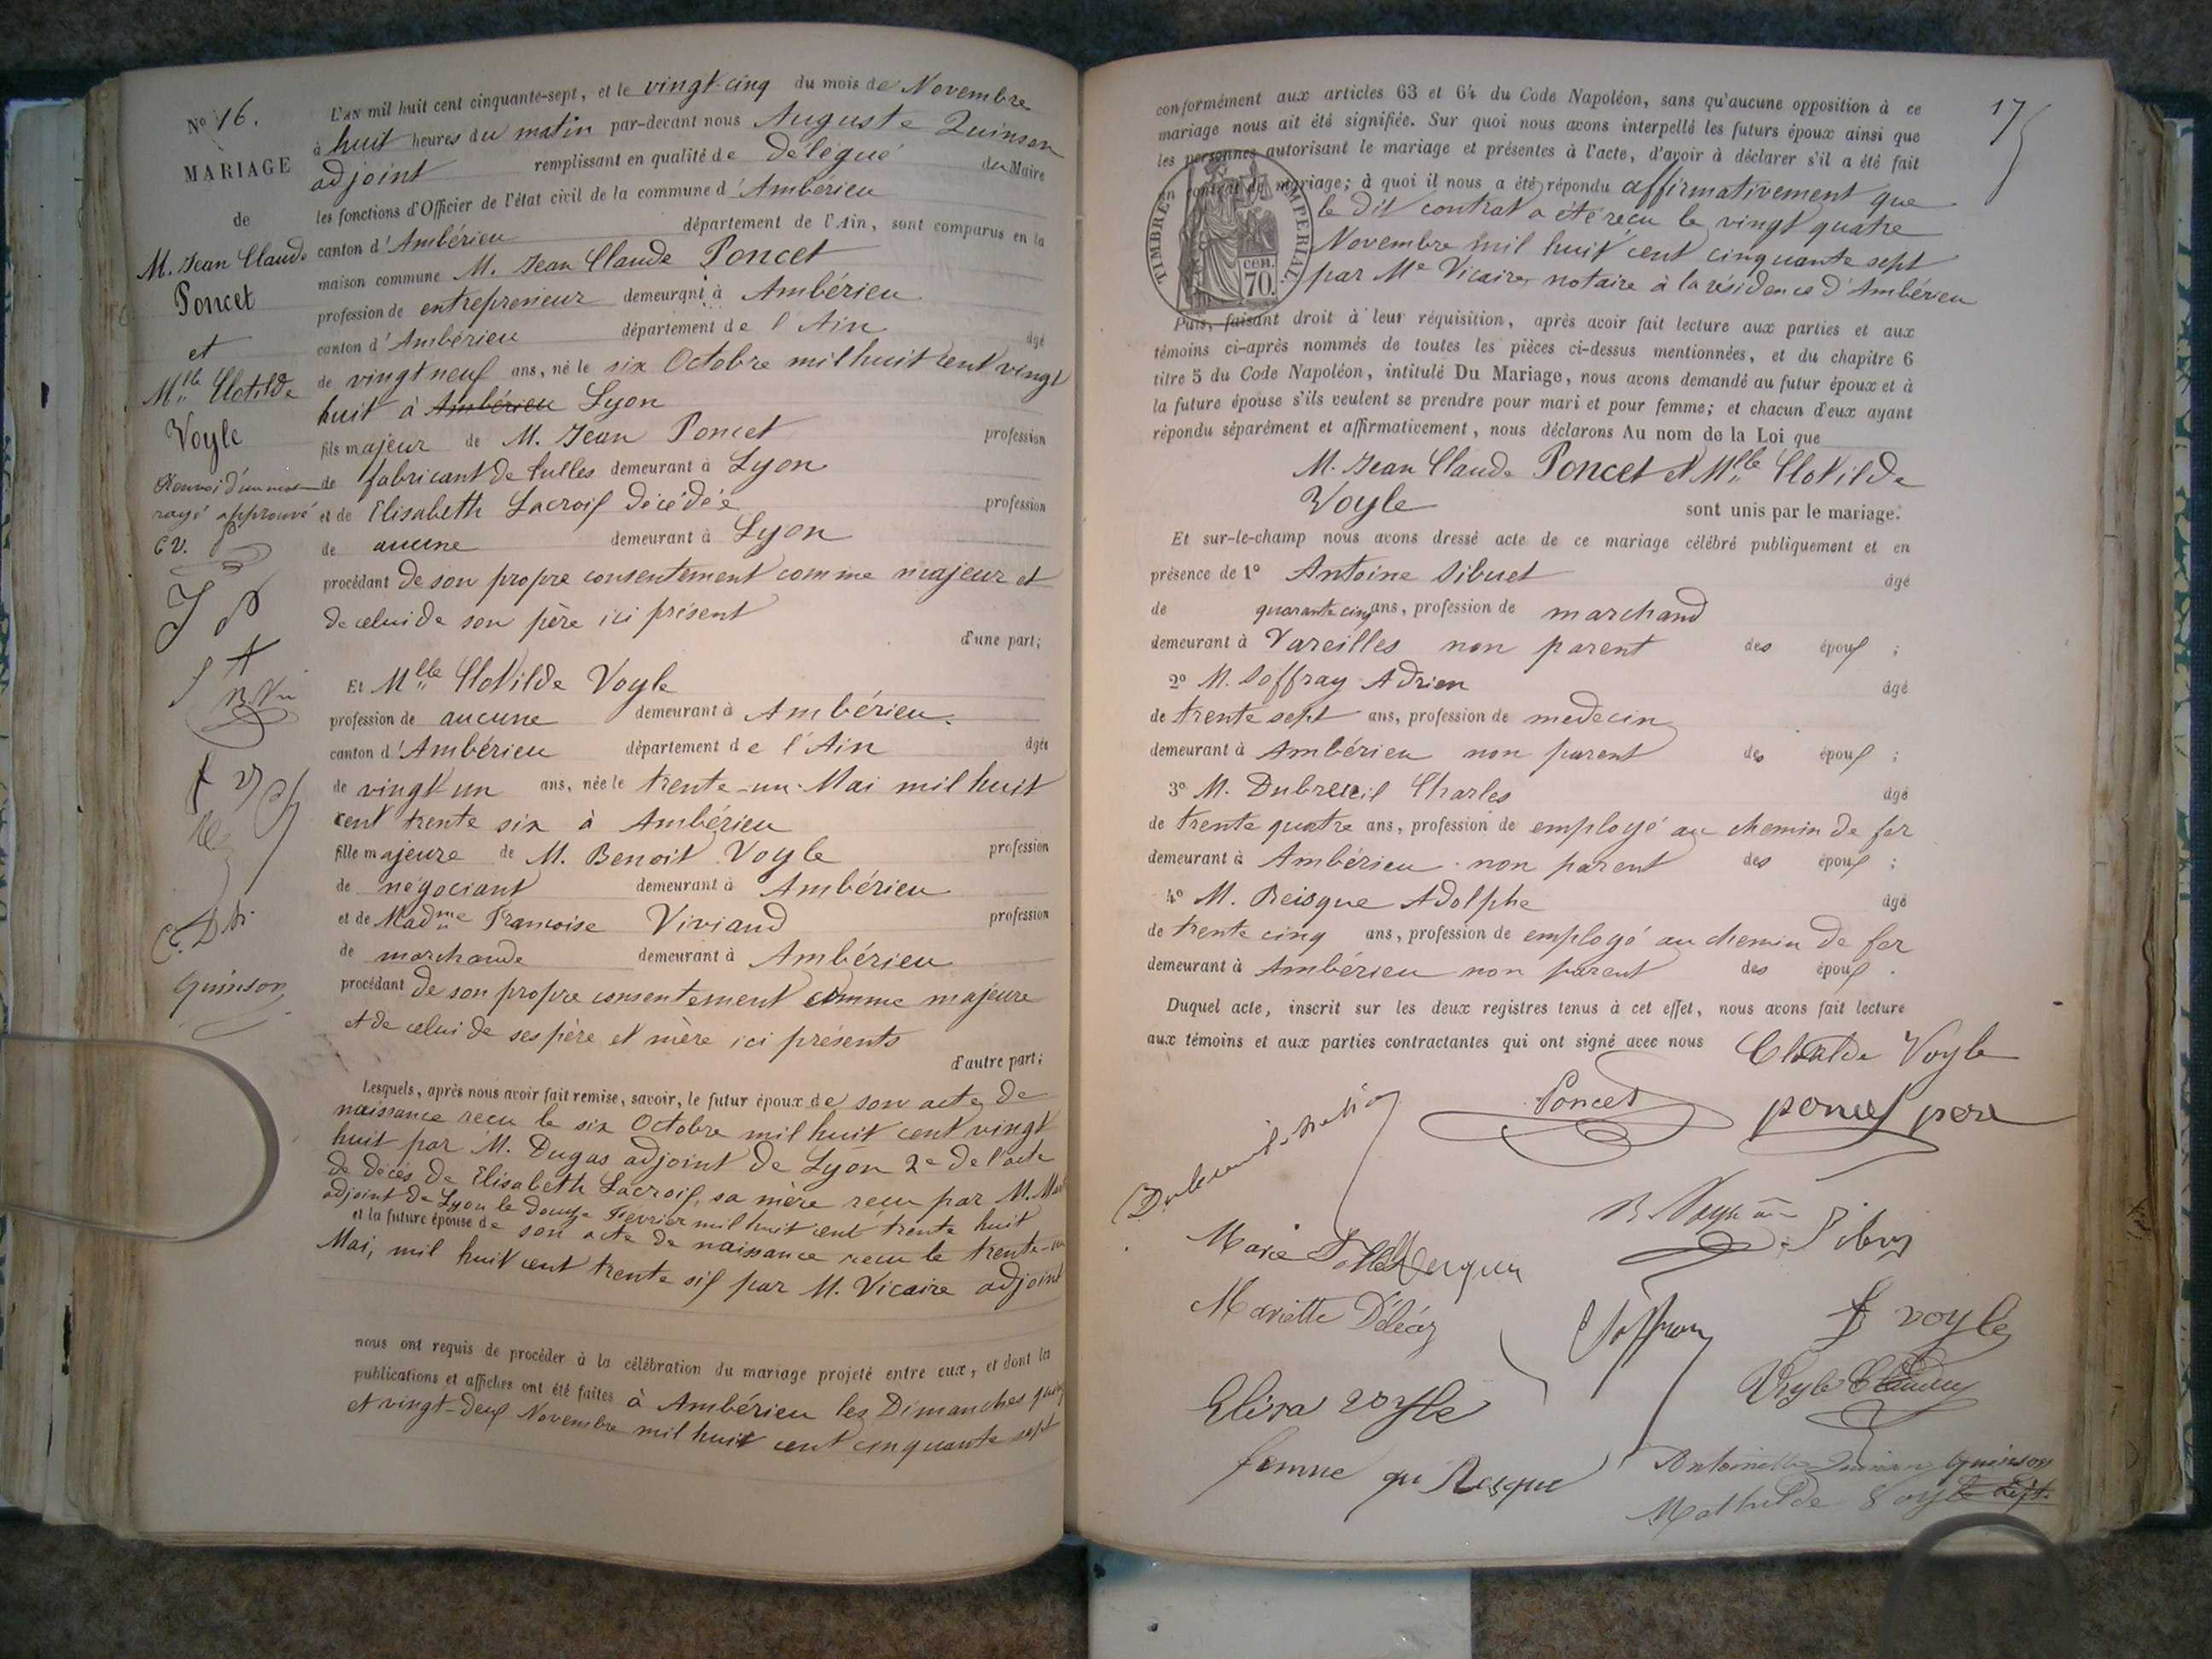 N° 16.
MARIAGE
de
M. Jean Claude
Poncet
et
Mlle Clotilde
Voyle
Renvoi d'un mot
rayé approuvé
C V. P
J P
B. Vu
C. D
Quinson
L'AN mil huit cent cinquante-sept, et le vingt-cinq du mois de Novembre
à huit heures du matin par-devant nous Auguste Quinson
adjoint remplissant en qualité de délégué du Maire
les fonctions d'Officier de l'état civil de la commune d'Ambérieu
canton d'Ambérieu département de l'Ain, sont comparus en la
maison commune M. Jean Claude Poncet
profession de entrepreneur demeurant à Ambérieu
canton d'Ambérieu département de l'Ain âgé
de vingt neuf ans, né le six Octobre mil huit cent vingt
huit à Ambérieu Lyon
fils majeur de M. Jean Poncet profession
de fabricant de tulles demeurant à Lyon
et de Elisabeth Lacroix décédée profession
de aucune demeurant à Lyon
procédant de son propre consentement comme majeur et
de celui de son père ici présent
d'une part;
Et Mlle Clotilde Voyle
profession de aucune demeurant à Ambérieu
canton d'Ambérieu département de l'Ain âgée
de vingt un ans, née le trente-un Mai mil huit
cent trente six à Ambérieu
fille majeure de M. Benoit Voyle profession
de négociant demeurant à Ambérieu
et de Madme Francoise Viviand profession
de marchande demeurant à Ambérieu
procédant de son propre consentement comme majeure
et de celui de ses père et mère ici présents
d'autre part;
Lesquels, après nous avoir fait remise, savoir, le futur époux de son acte de
naissance recu le six Octobre mil huit cent vingt
huit par M. Dugas adjoint de Lyon 2e de l'acte
de décès de Elisabeth Lacroix, sa mère recu par M.
adjoint de Lyon le douze Fevrier mil huit cent trente huit
et la future épouse de son acte de naissance recu le trente-un
Mai, mil huit cent trente six par M. Vicaire adjoint
nous ont requis de procéder à la célébration du mariage projeté entre eux, et dont les
publications et affiches ont été faites à Ambérieu les Dimanches quinze
et vingt-deux Novembre mil huit cent cinquante sept
17
conformément aux articles 63 et 64 du Code Napoléon, sans qu'aucune opposition à ce
mariage nous ait été signifiée. Sur quoi nous avons interpellé les futurs époux ainsi que
les personnes autorisant le mariage et présentes à l'acte, d'avoir à déclarer s'il a été fait
un contrat de mariage; à quoi il nous a été répondu affirmativement que
le dit contrat a été recu le vingt quatre
Novembre mil huit cent cinquante sept
par Me Vicaire, notaire à la résidence d'Ambérieu
TIMBRE IMPERIAL.
cen.
70.
Puis, faisant droit à leur réquisition, après avoir fait lecture aux parties et aux
témoins ci-après nommés de toutes les pièces ci-dessus mentionnées, et du chapitre 6
titre 5 du Code Napoléon, intitulé Du Mariage, nous avons demandé au futur époux et à
la future épouse s'ils veulent se prendre pour mari et pour femme; et chacun d'eux ayant
répondu séparément et affirmativement, nous déclarons Au nom de la Loi que
M. Jean Claude Poncet et Mlle Clotilde
Voyle sont unis par le mariage.
Et sur-le-champ nous avons dressé acte de ce mariage célébré publiquement et en
présence de 1° Antoine Sibuet âgé
de quarante cinq ans, profession de marchand
demeurant à Vareilles non parent des époux ;
2° M. Soffray Adrien âgé
de trente sept ans, profession de medecin
demeurant à Ambérieu non parent des époux ;
3° M. Dubreuil Charles âgé
de trente quatre ans, profession de employé au chemin de fer
demeurant à Ambérieu non parent des époux ;
4° M. Reisque Adolphe âgé
de trente cinq ans, profession de employé au chemin de fer
demeurant à Ambérieu non parent des époux .
Duquel acte, inscrit sur les deux registres tenus à cet effet, nous avons fait lecture
aux témoins et aux parties contractantes qui ont signé avec nous Clotilde Voyle
Poncet poncet pere
B. Voyle
Marie
Mariette
Soffray
voyle
Elisa voyle
Voyle
femme
Antoinette Quinson
Mathilde Voyle